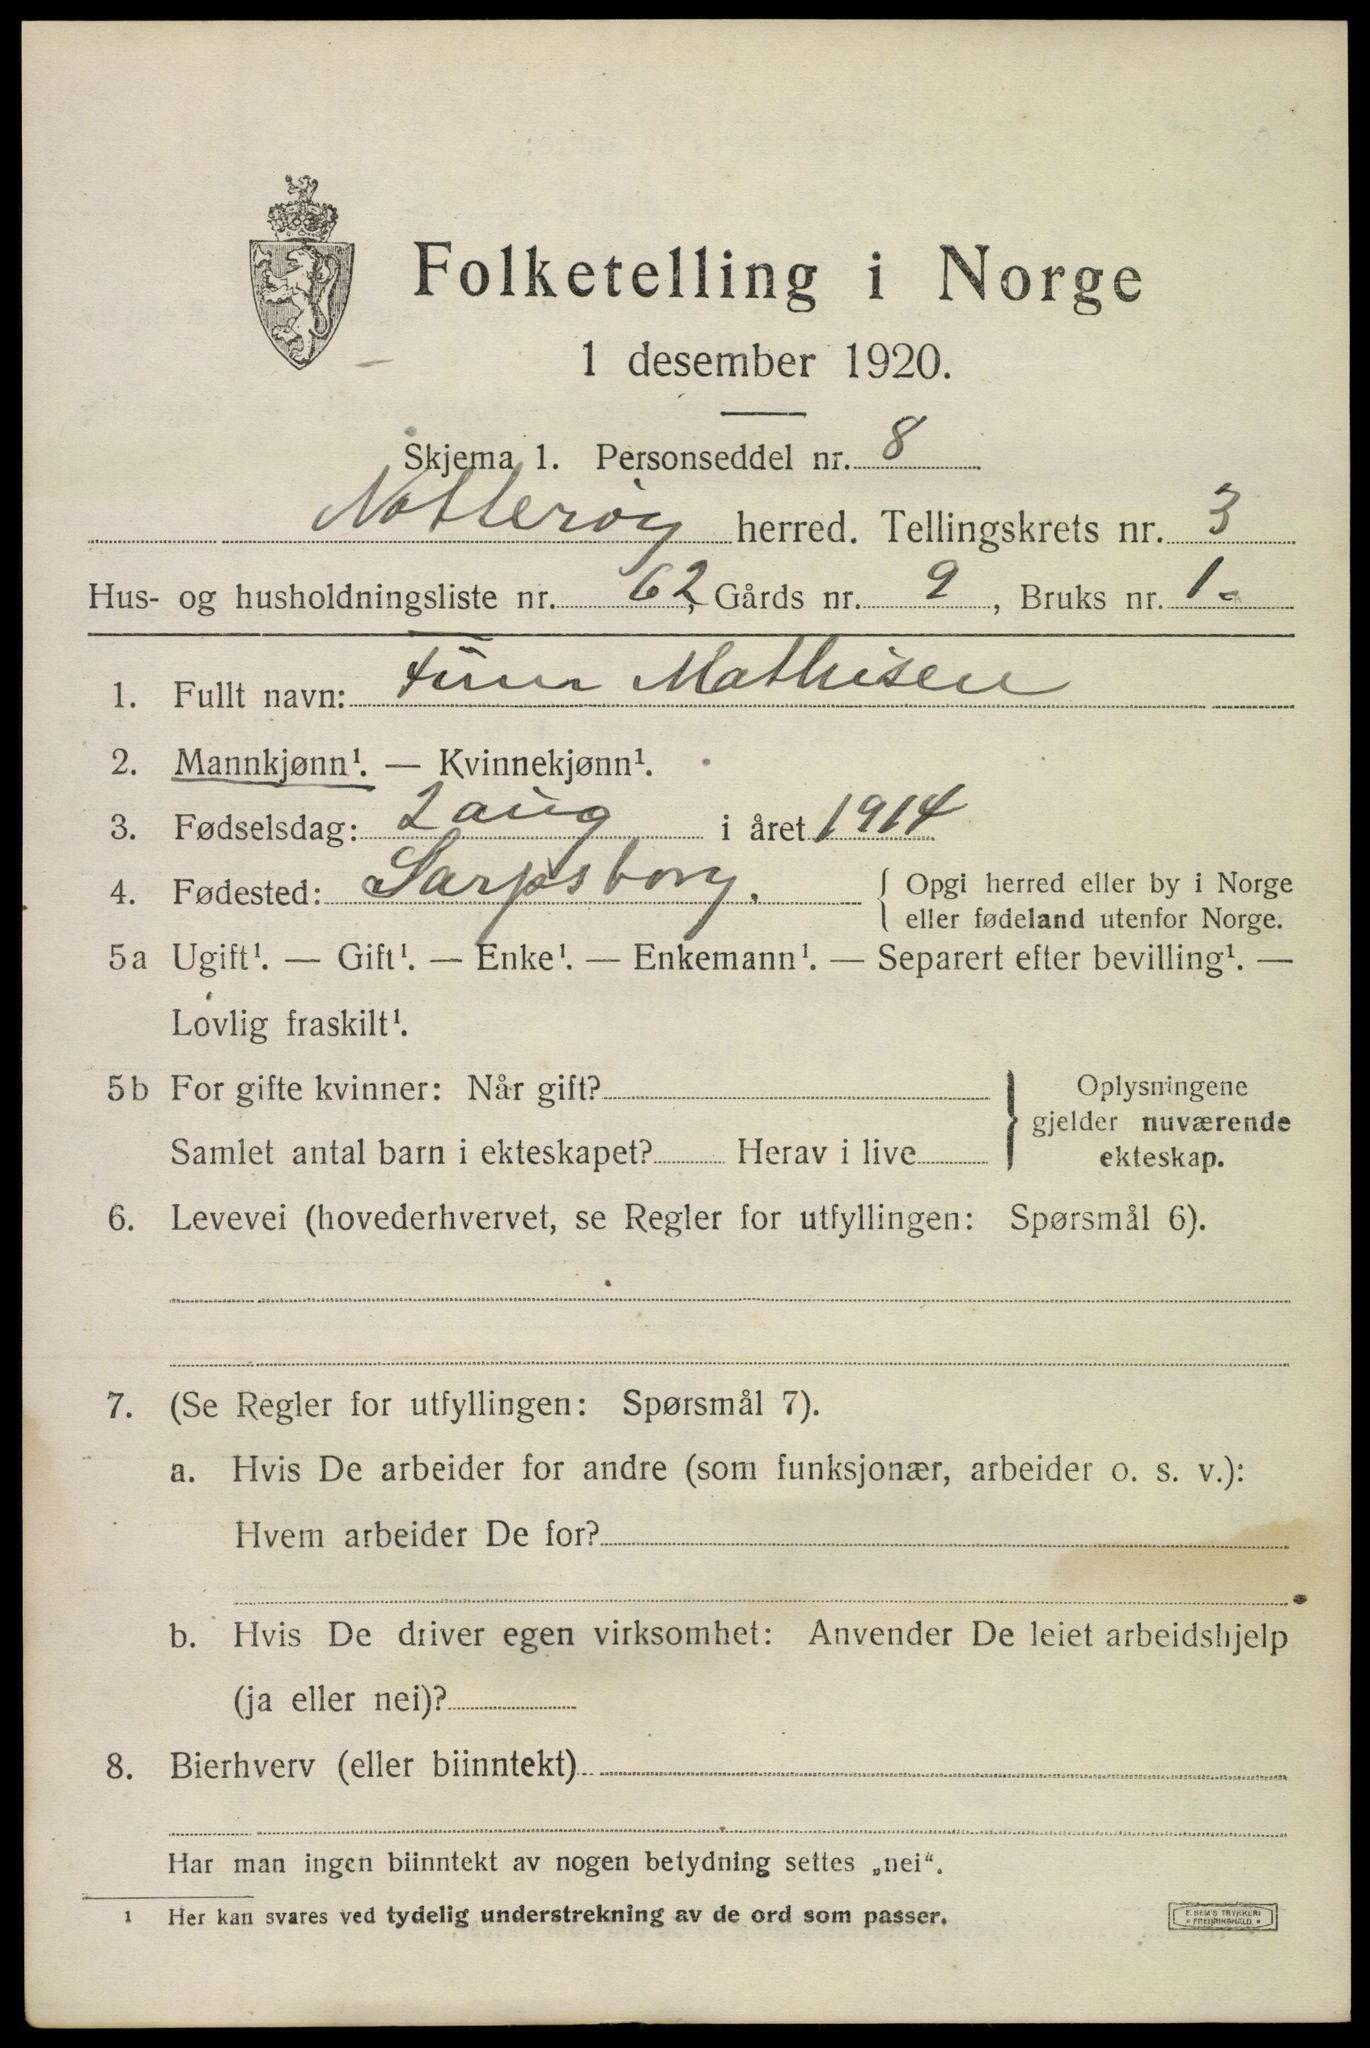 Folketelling i Norge
1 desember 1920.
Skjema 1. Personseddel nr. 8
Nøtterøy herred. Tellingskrets nr. 3
Hus- og husholdningsliste nr. 62, Gårds nr. 9, Bruks nr. 1.
1. Fullt navn: Finn Mathisen
2. Mannkjønn¹. — Kvinnekjønn¹.
3. Fødselsdag: 2 aug i året 1914
4. Fødested: Sarpsborg. { Opgi herred eller by i Norge
eller fødeland utenfor Norge.
5a Ugift¹. — Gift¹. — Enke¹. — Enkemann¹. — Separert efter bevilling¹. —
Lovlig fraskilt¹.
5b For gifte kvinner: Når gift? } Oplysningene
gjelder nuværende
Samlet antal barn i ekteskapet? Herav i live
ekteskap.
6. Levevei (hovederhvervet, se Regler for utfyllingen: Spørsmål 6).
7. (Se Regler for utfyllingen: Spørsmål 7).
a. Hvis De arbeider for andre (som funksjonær, arbeider o. s. v.):
Hvem arbeider De for?
b. Hvis De driver egen virksomhet: Anvender De leiet arbeidshjelp
(ja eller nei)?
8. Bierhverv (eller biinntekt)
Har man ingen biinntekt av nogen betydning settes „nei“.
1 Her kan svares ved tydelig understrekning av de ord som passer.
E. SEM'S TRYKKERI
FREDRIKSHALD